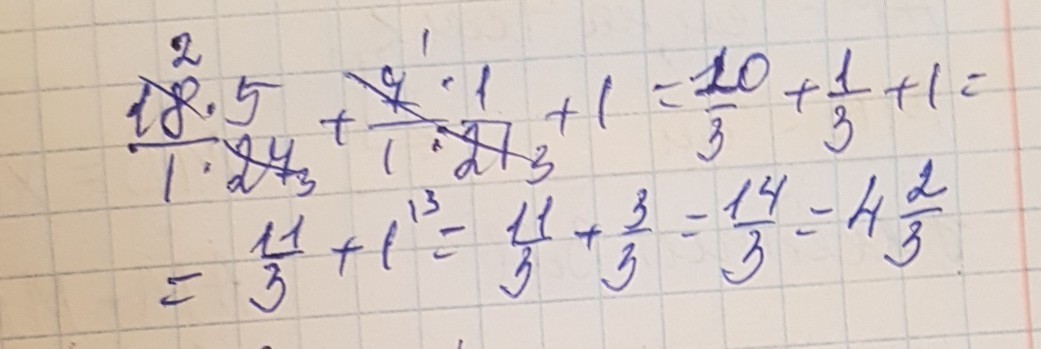 18·5/1·27 + 7·1/1·21 + 1 = 10/3 + 1/3 + 1 =
= 11/3 + 1 = 11/3 + 3/3 = 14/3 = 4 2/3